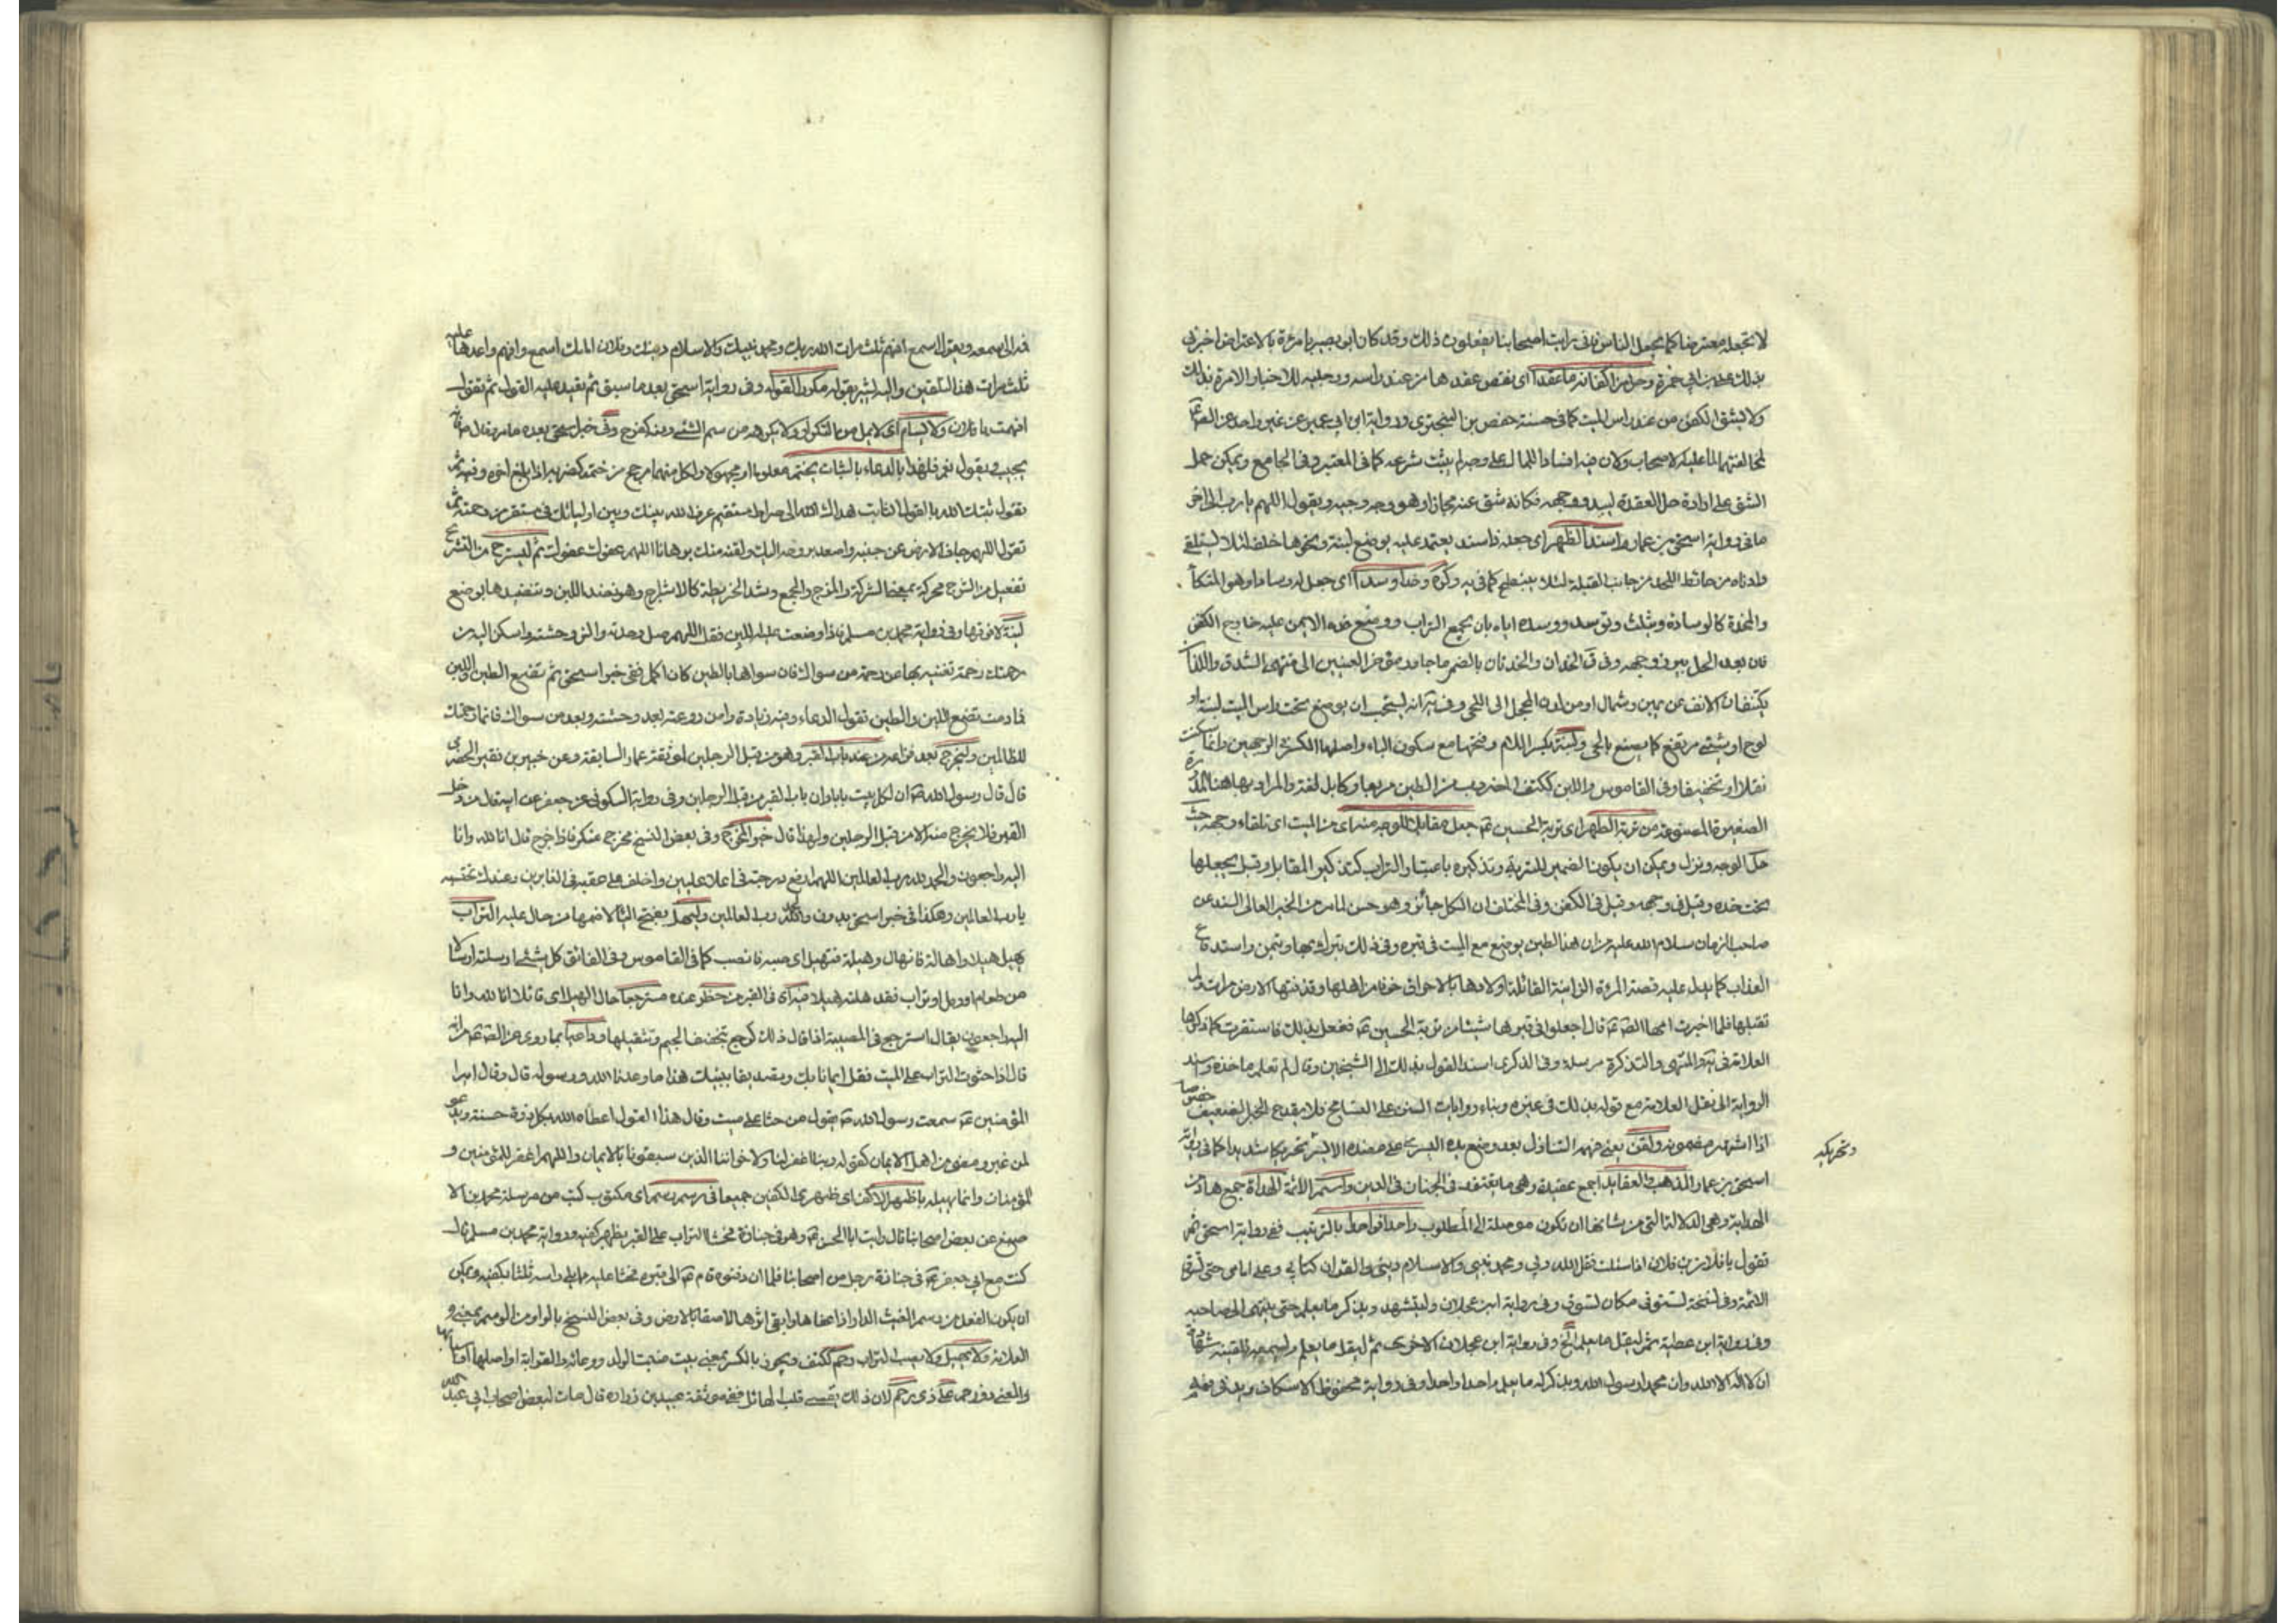 لا تجعله معترضا كما يجعل الناس فانى رايت اصحابنا يفعلون ذلك وقد كان ابو بصير يامر بالاعتراض اخبرنى
بذلك على بن ابى حمزة وحل من اكفانه ما عقدا اى نقض عقدها من عند راسه ورجليه للاخبار الامرة بذلك
ولا يشق الكفن من عند راس الميت كما فى حسنة حفص بن البخترى ورواية ابن ابى عمير عن غير واحد عن الص
لمخالفتهما لما عليه الاصحاب ولان فيه افسادا للمال على وجه لم يثبت شرعه كما فى المعتبر وفى الجامع ويمكن حمل
الشق على ارادة حل العقدة ليبدو وجهه فكانه شق عنه مجازا وهو وجه وجيه ويقول اللهم يا رب الى اخر
ما فى رواية اسحق بن عمار واسندا لظهر اى جعله ذا سند يعتمد عليه بوضع لبنة ونحوها خلفه لئلا يستلقى
وادناه من حائط اللحد من جانب القبلة لئلا ينبطح كما فى يه وكره وخدا وسدا اى جعل له وسادا وهو المتكأ
والمخدة كالوسادة ويثلث وتوسد ووسده اياه بان يجمع التراب ووضع خده الايمن عليه خارج الكفن
فان بعد الحل يبرز وجهه وفى ق الخدان والخدتان بالضم ما جاوز مؤخر العينين الى منتهى الشدق واللذان
يكتنفان الانف عن يمين وشمال او من لدن المحجر الى اللحى وفى يه انه يستحب ان يوضع تحت راس الميت لبنة او
لوح او شئ مرتفع كما يصنع بالحى ولبنة بكسر اللام وفتحها مع سكون الباء واصلها الكسر الوجهين وانما سكنت
نقلا او تخفيفا وفى القاموس واللبن ككتف المضروب من الطين مربعا وكابل لغة والمراد بها هنا المدرة
الصغيرة المصنوعة من تربة الطهر اى تربة الحسين ع جعل مقابل الوجه منه اى من الميت اى تلقاء وجهه حيث
حل الوجه ونزل ويمكن ان يكون الضمير للتربة وتذكيره باعتبار التراب كتذكير المقابل وقيل يجعلها
تحت خده وقيل فى وجهه وقيل فى الكفن وفى المختلف ان الكل جائز وهو حسن لما مر من الخبر العالى السند عن
صاحب الزمان سلام الله عليه من ان هذا الطين يوضع مع الميت فى قبره وفى ذلك تبرك بها وتيمن واستدفاع
العذاب كما يدل عليه قصة المرءة الزانية القاتلة اولادها بالاحراق خوفا من اهلها وقذفتها الارض مرات ولم
تقبلها فلما اخبرت امها الص ع قال اجعلوا فى قبرها شيئا من تربة الحسين ع ففعل بذلك فاستقرت كما ذكرها
العلامة فى يه والمنتهى والتذكرة مرسلة وفى الذكرى اسند القول بذلك الى الشيخين وقال لم نعلم ماخذه وسند
الرواية الى نقل العلامة مع قوله بذلك فى غيره وبناء روايات السنن على التسامح فلا يقدح الخبر الضعيف خصوصا
اذا اشتهر مضمونه ولقن يعنى فهم التنازل بعد وضع يده اليسرى على عضده الايسر تحريكا شديدا كما فى رواية
وتحريكه
اسحق بن عمار المذهب والعقايد جمع عقيدة وهى ما يعتقد فى الجنان فى الدين واستمر الائمة الهداة جمع هاد من
الهداية وهى الدلالة التى من شانها ان تكون موصلة الى المطلوب واحدا فواحدا بالترتيب ففى رواية اسحق ثم
تقول يا فلان بن فلان اذا سئلت فقل الله ربى ومحمد نبيى والاسلام دينى والقران كتابى وعلى امامى حتى تسوق
الائمة وفى نسخة تستوفى مكان تسوق وفى رواية ابن عجلان وليتشهد ويذكر ما يعلم حتى ينتهى الى صاحبه
وفى رواية ابن عطية ثم ليقل ما يعلم الخ وفى رواية ابن عجلان الاخرى ثم ليقل ما يعلم وليسمعه تلقينه شهادة
ان لا اله الا الله وان محمدا رسول الله ويذكر له ما يعلم واحدا واحدا وفى رواية محفوظ الاسكاف ويدنى فمه
فمه الى سمعه ويقول اسمع افهم ثلث مرات الله ربك ومحمد نبيك والاسلام دينك وفلان امامك اسمع وافهم واعدها عليه
ثلث مرات هذا التلقين واليه اشير بقوله مكررا لقوله وفى رواية اسحق بعد ما سبق ثم تعيد عليه القول ثم تقول
افهمت يا فلان ولا تسأم اى لا تمل من التكرار ولا تكره من سئم الشئ ومنه كفرح وفى خبر اسحق بعده ما مر فقال ع فانه
يجيب ويقول نعم فلهذا بالدعاء بالثبات يختم معلوما او مجهولا ولكل منهما مرجع من ختمه كضربه اذا بلغ اخره وفيه ثم
تقول ثبتك الله بالقول الثابت هداك الله الى صراط مستقيم عرف الله بينك وبين اوليائك فى مستقر من رحمته ثم
تقول اللهم جاف الارض عن جنبيه واصعد بروحه اليك ولقنه منك برهانا اللهم عفوك عفوك ثم ليشرج من التشريج
تفعيل من الشرج محركة بمعنى الشركة والمزج والجمع وشد الخريطة كالاشراج وهو نضد اللبن وتنضيدها بوضع
لبنة لا فوقها وفى رواية محمد بن مسلم فاذا وضعت عليه اللبن فقل اللهم صل وحدته وانس وحشته واسكن اليه من
رحمتك رحمة تغنيه بها عن رحمة من سواك فان سواها بالطين كان اكمل ففى خبر اسحق ثم تضع الطين واللبن
فما دمت تضع اللبن والطين تقول الدعاء وفيه زيادة وامن روعته بعد وحشته وبعد من سواك فانما رحمتك
للظالمين وليخرج بعد فراغه من عند باب القبر وهو من قبل الرجلين لموثقة عمار السابقة وعن جبير بن نقير الحضرمى
قال قال رسول الله ص ان لكل بيت بابا وان باب القبر من قبل الرجلين وفى رواية السكونى عن جعفر عن ابيه قال من دخل
القبر فلا يخرج منه الا من قبل الرجلين ولهذا قال خير المخرج وفى بعض النسخ مخرج منكر فاذا خرج قال انا لله وانا
اليه راجعون والحمد لله رب العالمين اللهم ارفع درجته فى اعلا عليين واخلف على عقبه فى الغابرين وعندك نحتسبه
يا رب العالمين وهكذا فى خبر اسحق بدون والحمد لله رب العالمين وليهل بفتح الثا لا ضمها من حال عليه التراب
يهيل هيلا واهالة فانهال وهيلة فتهيل اى صبه فانصب كما فى القاموس وفى الفائق كل شئ ارسلته ارسالا
من طعام او رمل او تراب فقد هلته هيلا فيه اى فى القبر من حظر عنده مسترجعا حال الهيل اى قائلا انا لله وانا
اليه راجعون يقال استرجع فى المصيبة اذا قال ذلك كرجع بتخفيف الجيم وتثقيلها وداعيا بما روى عن الص ع انه
قال اذا حثوت التراب على الميت فقل ايمانا بك وتصديقا ببينك هذا ما وعدنا الله ورسوله قال وقال امير
المؤمنين ع سمعت رسول الله ص يقول من حثا على ميت وقال هذا القول اعطاه الله بكل ذرة حسنة ويدعو
لمن غبر ومضى من اهل الايمان كقوله ربنا اغفر لنا ولاخواننا الذين سبقونا بالايمان واللهم اغفر للمؤمنين و
المؤمنات وانما يهيله باظهر الاكف اى ظهرى الكفين جميعا فى رسم رسم اى مكتوب كتب من مرسلة محمد بن الا
صبغ عن بعض اصحابنا قال رايت ابا الحسن ع وهو فى جنازة فحثا التراب على القبر بظهر كفيه ورواية محمد بن مسلم قال
كنت مع ابى جعفر ع فى جنازة رجل من اصحابنا فلما ان دفنوه قام ع الى قبره فحثا عليه مما يلى راسه ثلثا بكفيه ويمكن
ان يكون الفعل من رسم الغيث الدار اذا عفاها وابقى اثرها لاصقا بالارض وفى بعض النسخ بالواو من الوسم بمعنى و
العلامة ولا يهيل ولا يصب التراب رحم ككتف ويجوز بالكسر بمعنى بيت منبت الولد ووعائه والقرابة او اصلها او اسبابها
والمعنى ذو رحم على ذى رحم لان ذلك يقسى قلب الهائل ففى موثقة عبيد بن زرارة قال مات لبعض اصحاب ابى عبد الله